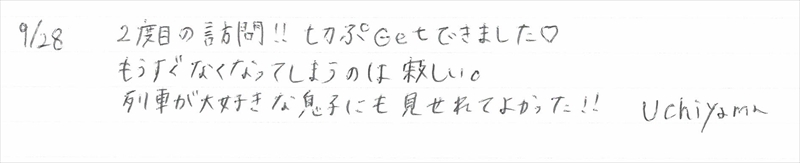 9/28 2度目の訪問!! 切ぷGetできました♡
もうすぐなくなってしまうのは寂しい。
列車が大好きな息子にも見せれてよかった!! Uchiyama